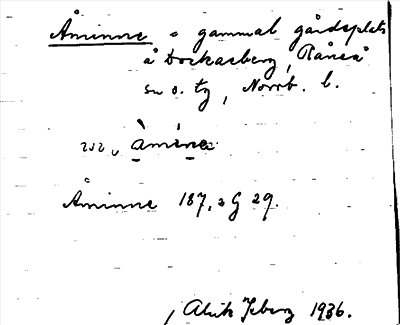 Åminne = gammal gårdsplats
å Dockasberg, Råneå
sn o. tg, Norrb. l.
àmìne
Åminne 187, 2 G 29.
Alrik 1936.